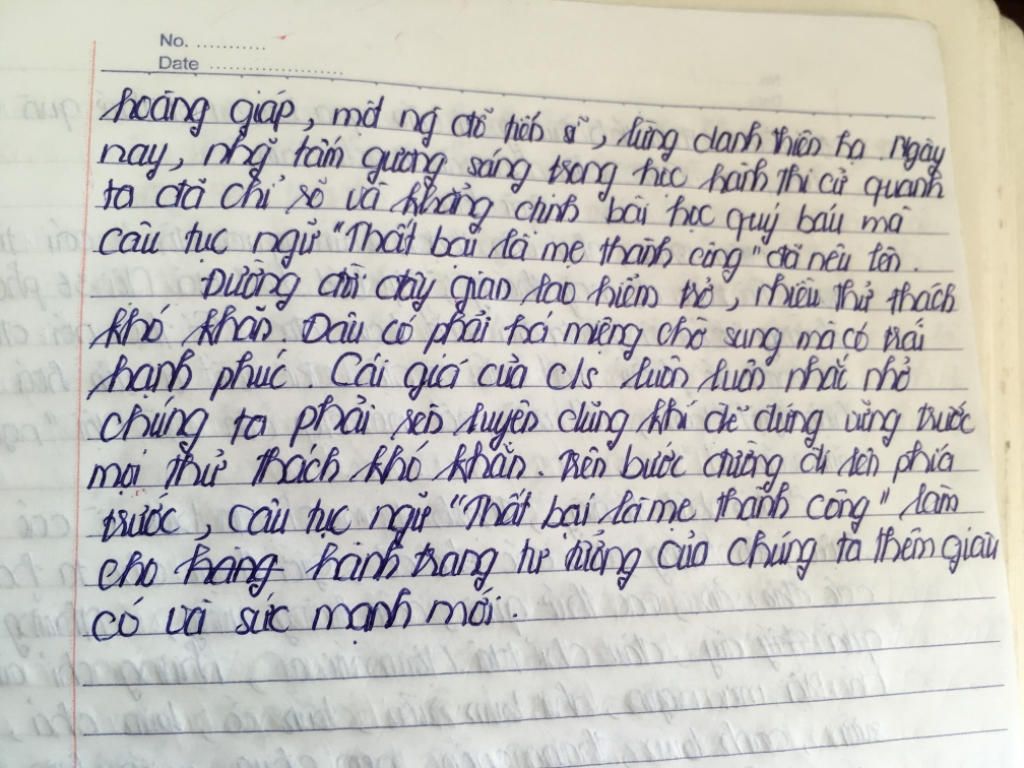 No. ...........
Date ......................
hoàng giáp, mới ng đỗ tiến sĩ, lừng danh thiên hạ. Ngày
nay, nhg̃ tấm gương sáng trong học hành thi cử quanh
ta đã chỉ rõ và khẳng định bài học quý báu mà
câu tục ngữ "Thất bại là mẹ thành công" đã nêu lên.
Đường đời đầy gian lao hiểm trở, nhiều thử thách
khó khăn. Dâu có phải há miệng chờ sung mà có trái
hạnh phúc. Cái giá của c/s luôn luôn nhắc nhở
chúng ta phải rèn luyện dũng khí để đứng vững trước
mọi thử thách khó khăn. Trên bước đường đi lên phía
trước, câu tục ngữ "Thất bại là mẹ thành công" làm
cho hàng hành trang tư tưởng của chúng ta thêm giàu
có và sức mạnh mới.